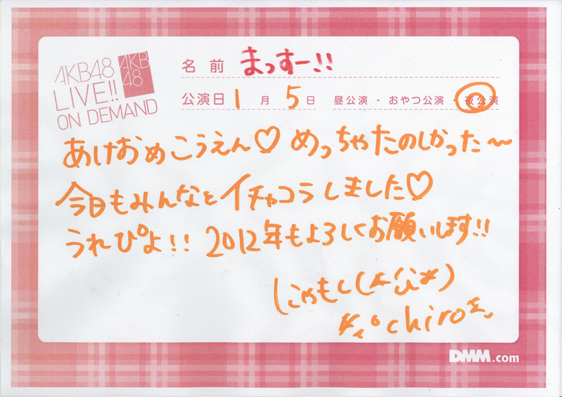 AKB48
LIVE!!
ON DEMAND
AKB
48
名前 まっすー!!
公演日 1月5日 昼公演・おやつ公演・夜公演
あけおめこうえん♡ めっちゃたのしかった〜
今日もみんなとイチャコラしました♡
うれぴよ!! 2012年もよろしくお願いします!!
chiro
DMM.com